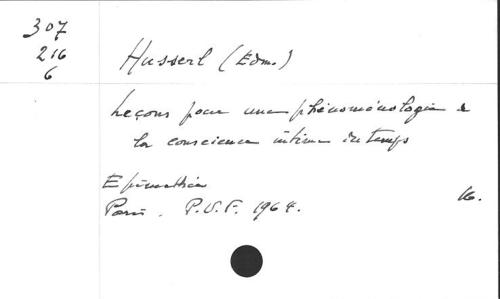 307
216
6
Husserl (Edm.)
Leçons pour une phénoménologie de
la conscience intime du temps
Epiméthée
Paris. P.U.F. 1964.
16.